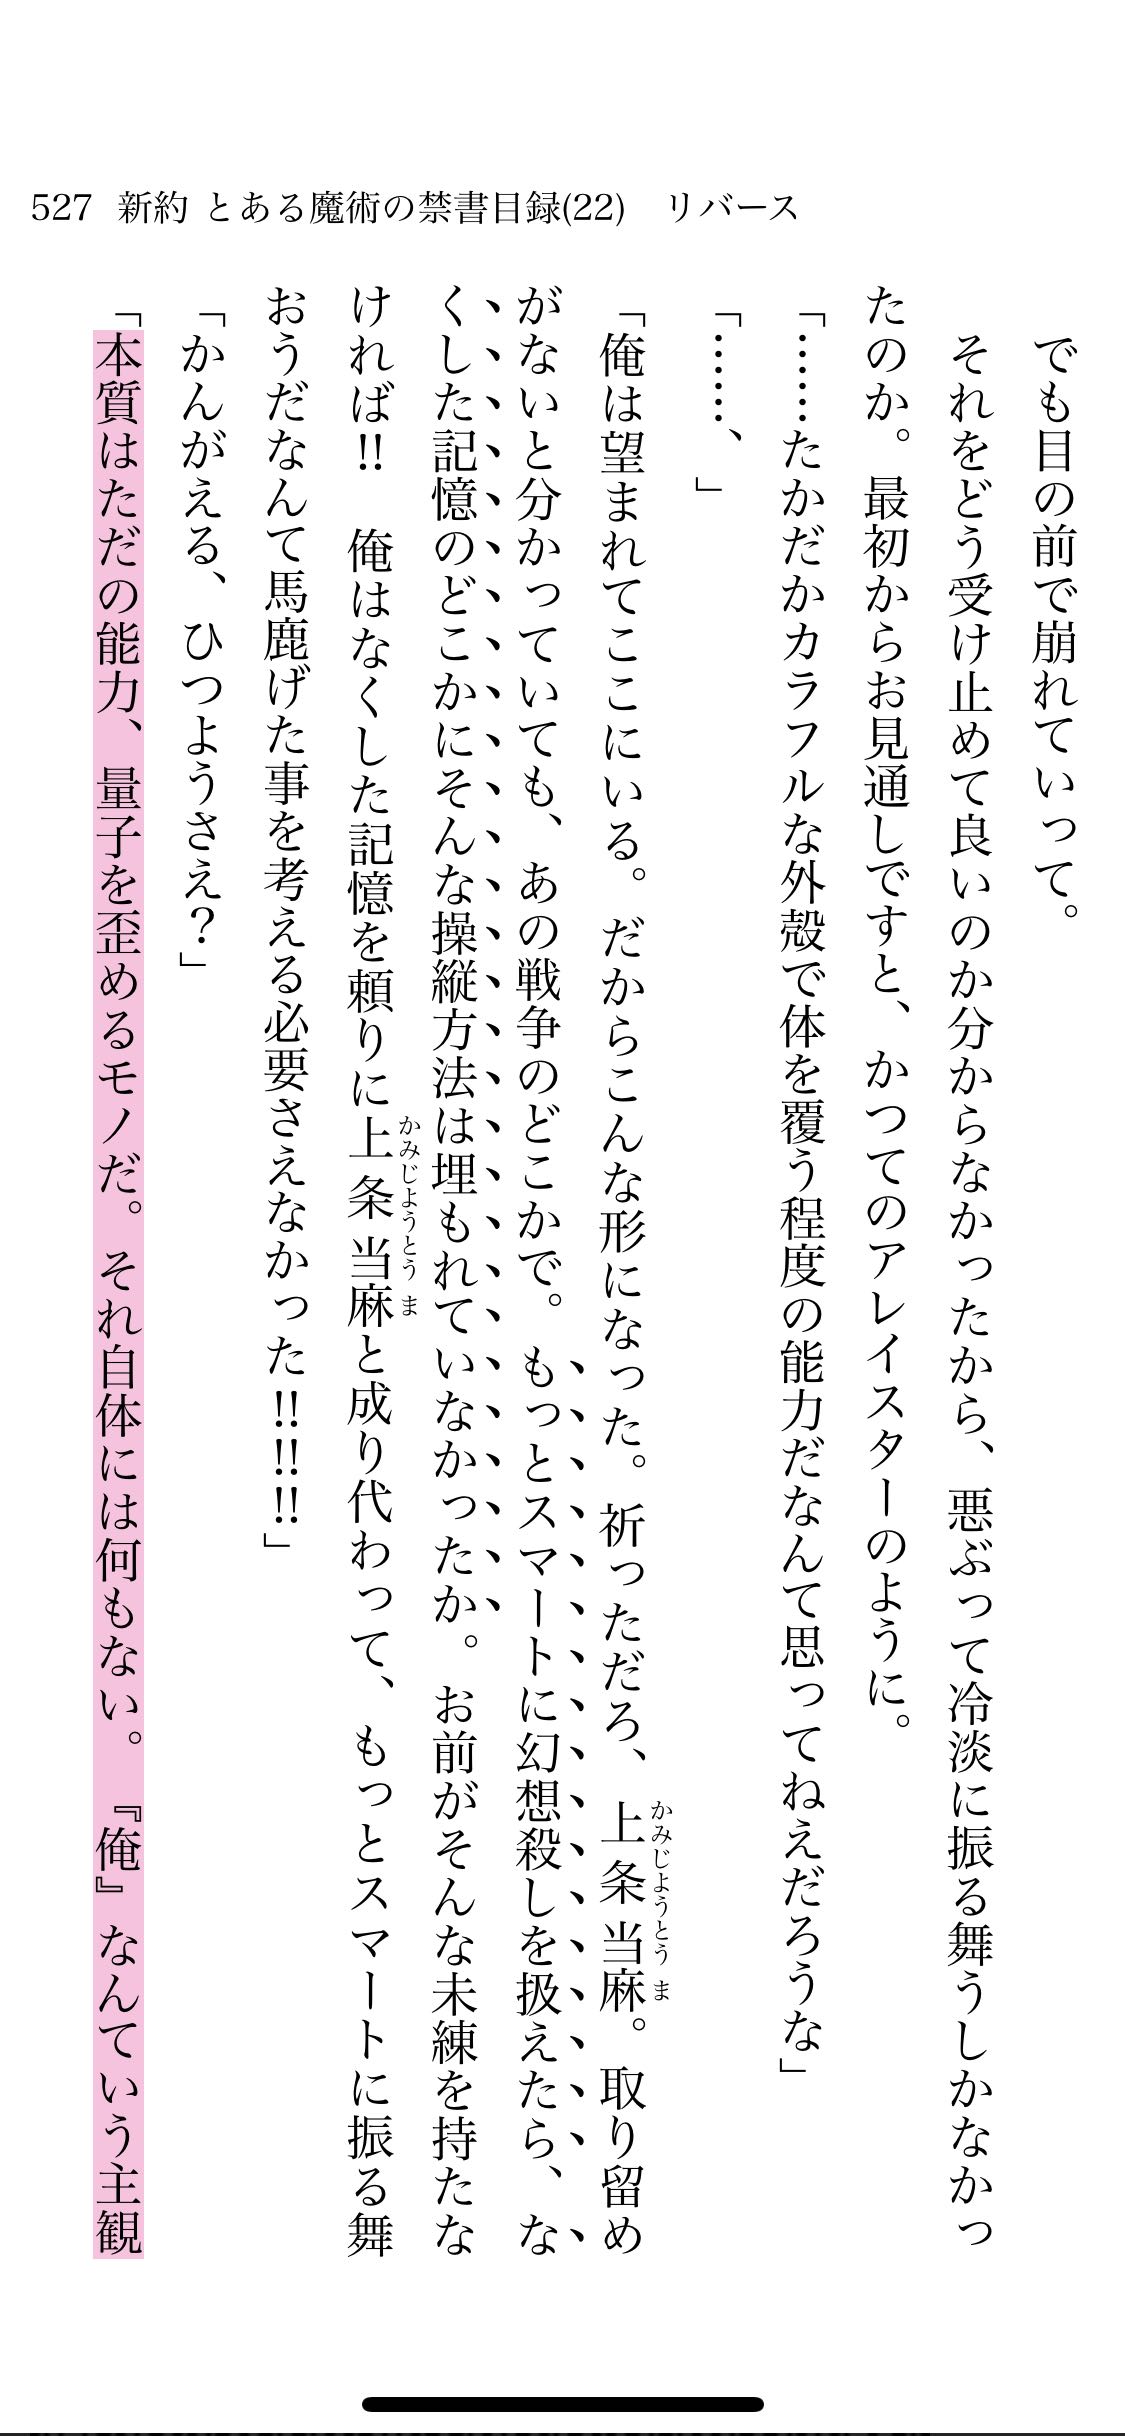 527 新約 とある魔術の禁書目録(22) リバース
でも目の前で崩れていって。
それをどう受け止めて良いのか分からなかったから、悪ぶって冷淡に振る舞うしかなかっ
たのか。最初からお見通しですと、かつてのアレイスターのように。
「……たかだかカラフルな外殻で体を覆う程度の能力だなんて思ってねえだろうな」
「……、」
「俺は望まれてここにいる。だからこんな形になった。祈っただろ、上条当麻。取り留め
がないと分かっていても、あの戦争のどこかで。もっとスマートに幻想殺しを扱えたら、な
くした記憶のどこかにそんな操縦方法は埋もれていなかったか。お前がそんな未練を持たな
ければ!! 俺はなくした記憶を頼りに上条当麻と成り代わって、もっとスマートに振る舞
おうだなんて馬鹿げた事を考える必要さえなかった!!!!!!」
「かんがえる、ひつようさえ?」
「本質はただの能力、量子を歪めるモノだ。それ自体には何もない。『俺』なんていう主観